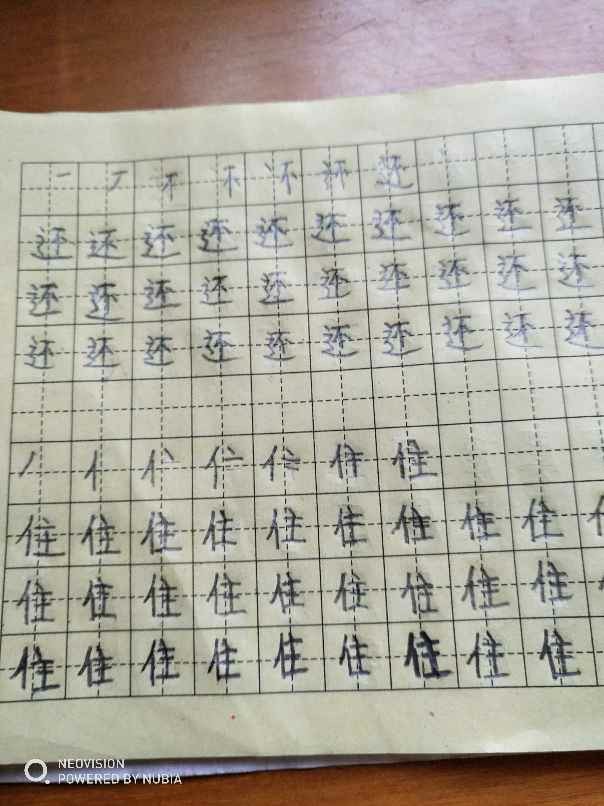 一 丆 不 不 不 还 还
还 还 还 还 还 还 还 还 还 还
还 还 还 还 还 还 还 还 还 还
还 还 还 还 还 还 还 还 还 还
丿 亻 住
住 住 住 住 住 住 住 住 住
住 住 住 住 住 住 住 住 住
住 住 住 住 住 住 住 住 住
NEOVISION
POWERED BY NUBIA